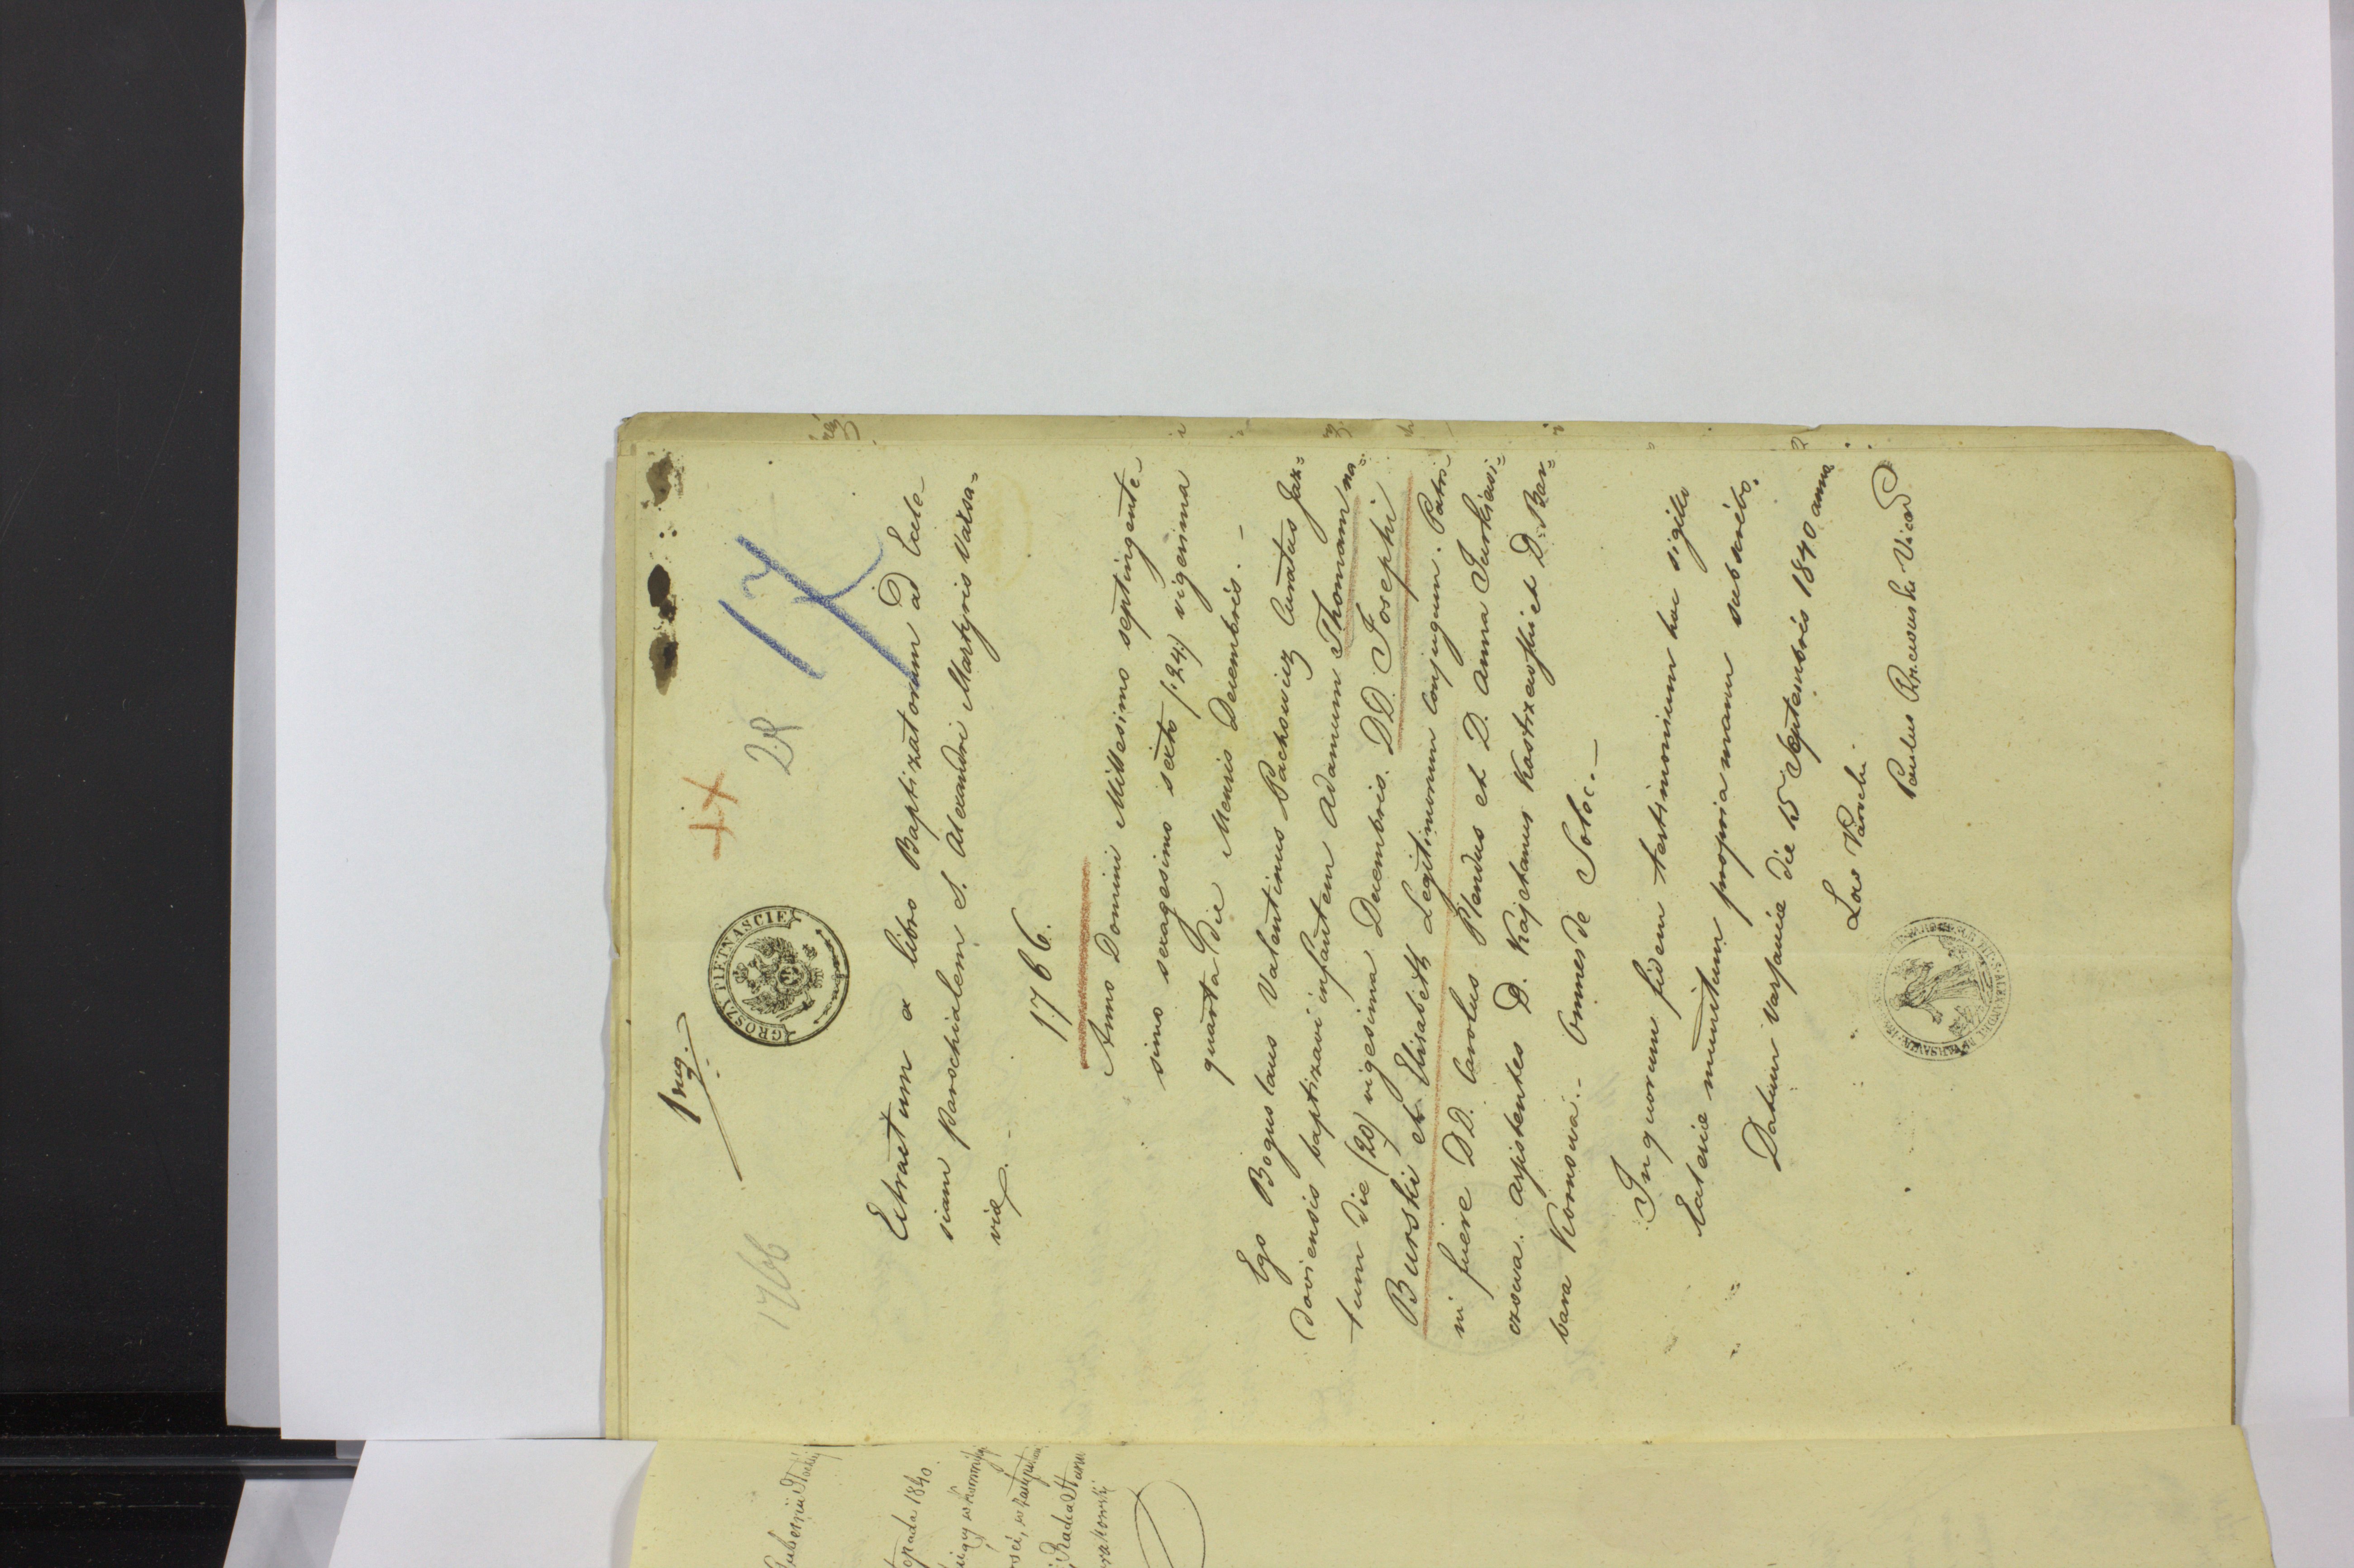 1 reg.
1766
28
17
GROSZY PIETNASCIE
Extractum a libro Baptizatorum ad Eccle-
siam parochialem S. Alexandri Martyris Varsa=
viæ
1766.
Anno Domini Millesimo septingente-
simo sexagesimo sexto /:24/ vigesima
quarta Die Mensis Decembris. —
Ego Boguslaus Valentinus Pachowicz Curatus Jaz=
doviensis baptizavi infantem Adamum Thomam na=
tum die /20/ vigesima Decembris. DD. Josephi
Burski et Elisabeth Legitimorum Conjugum. Patri-
ni fuere DD. Carolus et D. Anna
assistentes D. Kajetanus et D. Bar=
bara Omnes de Solec. —
In quorum fidem testimonium hoc sigillo
Eclesiæ munitum propria manu subscribo.
Datum Varsaviæ die 15 Septembris 1840 anno
Paulus Vica
Gubernii
opada 1840.